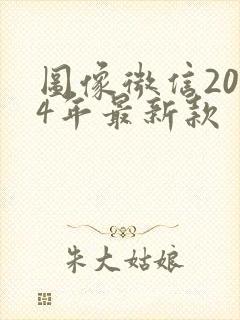 图像微信20
4年最新款
朱大姑娘